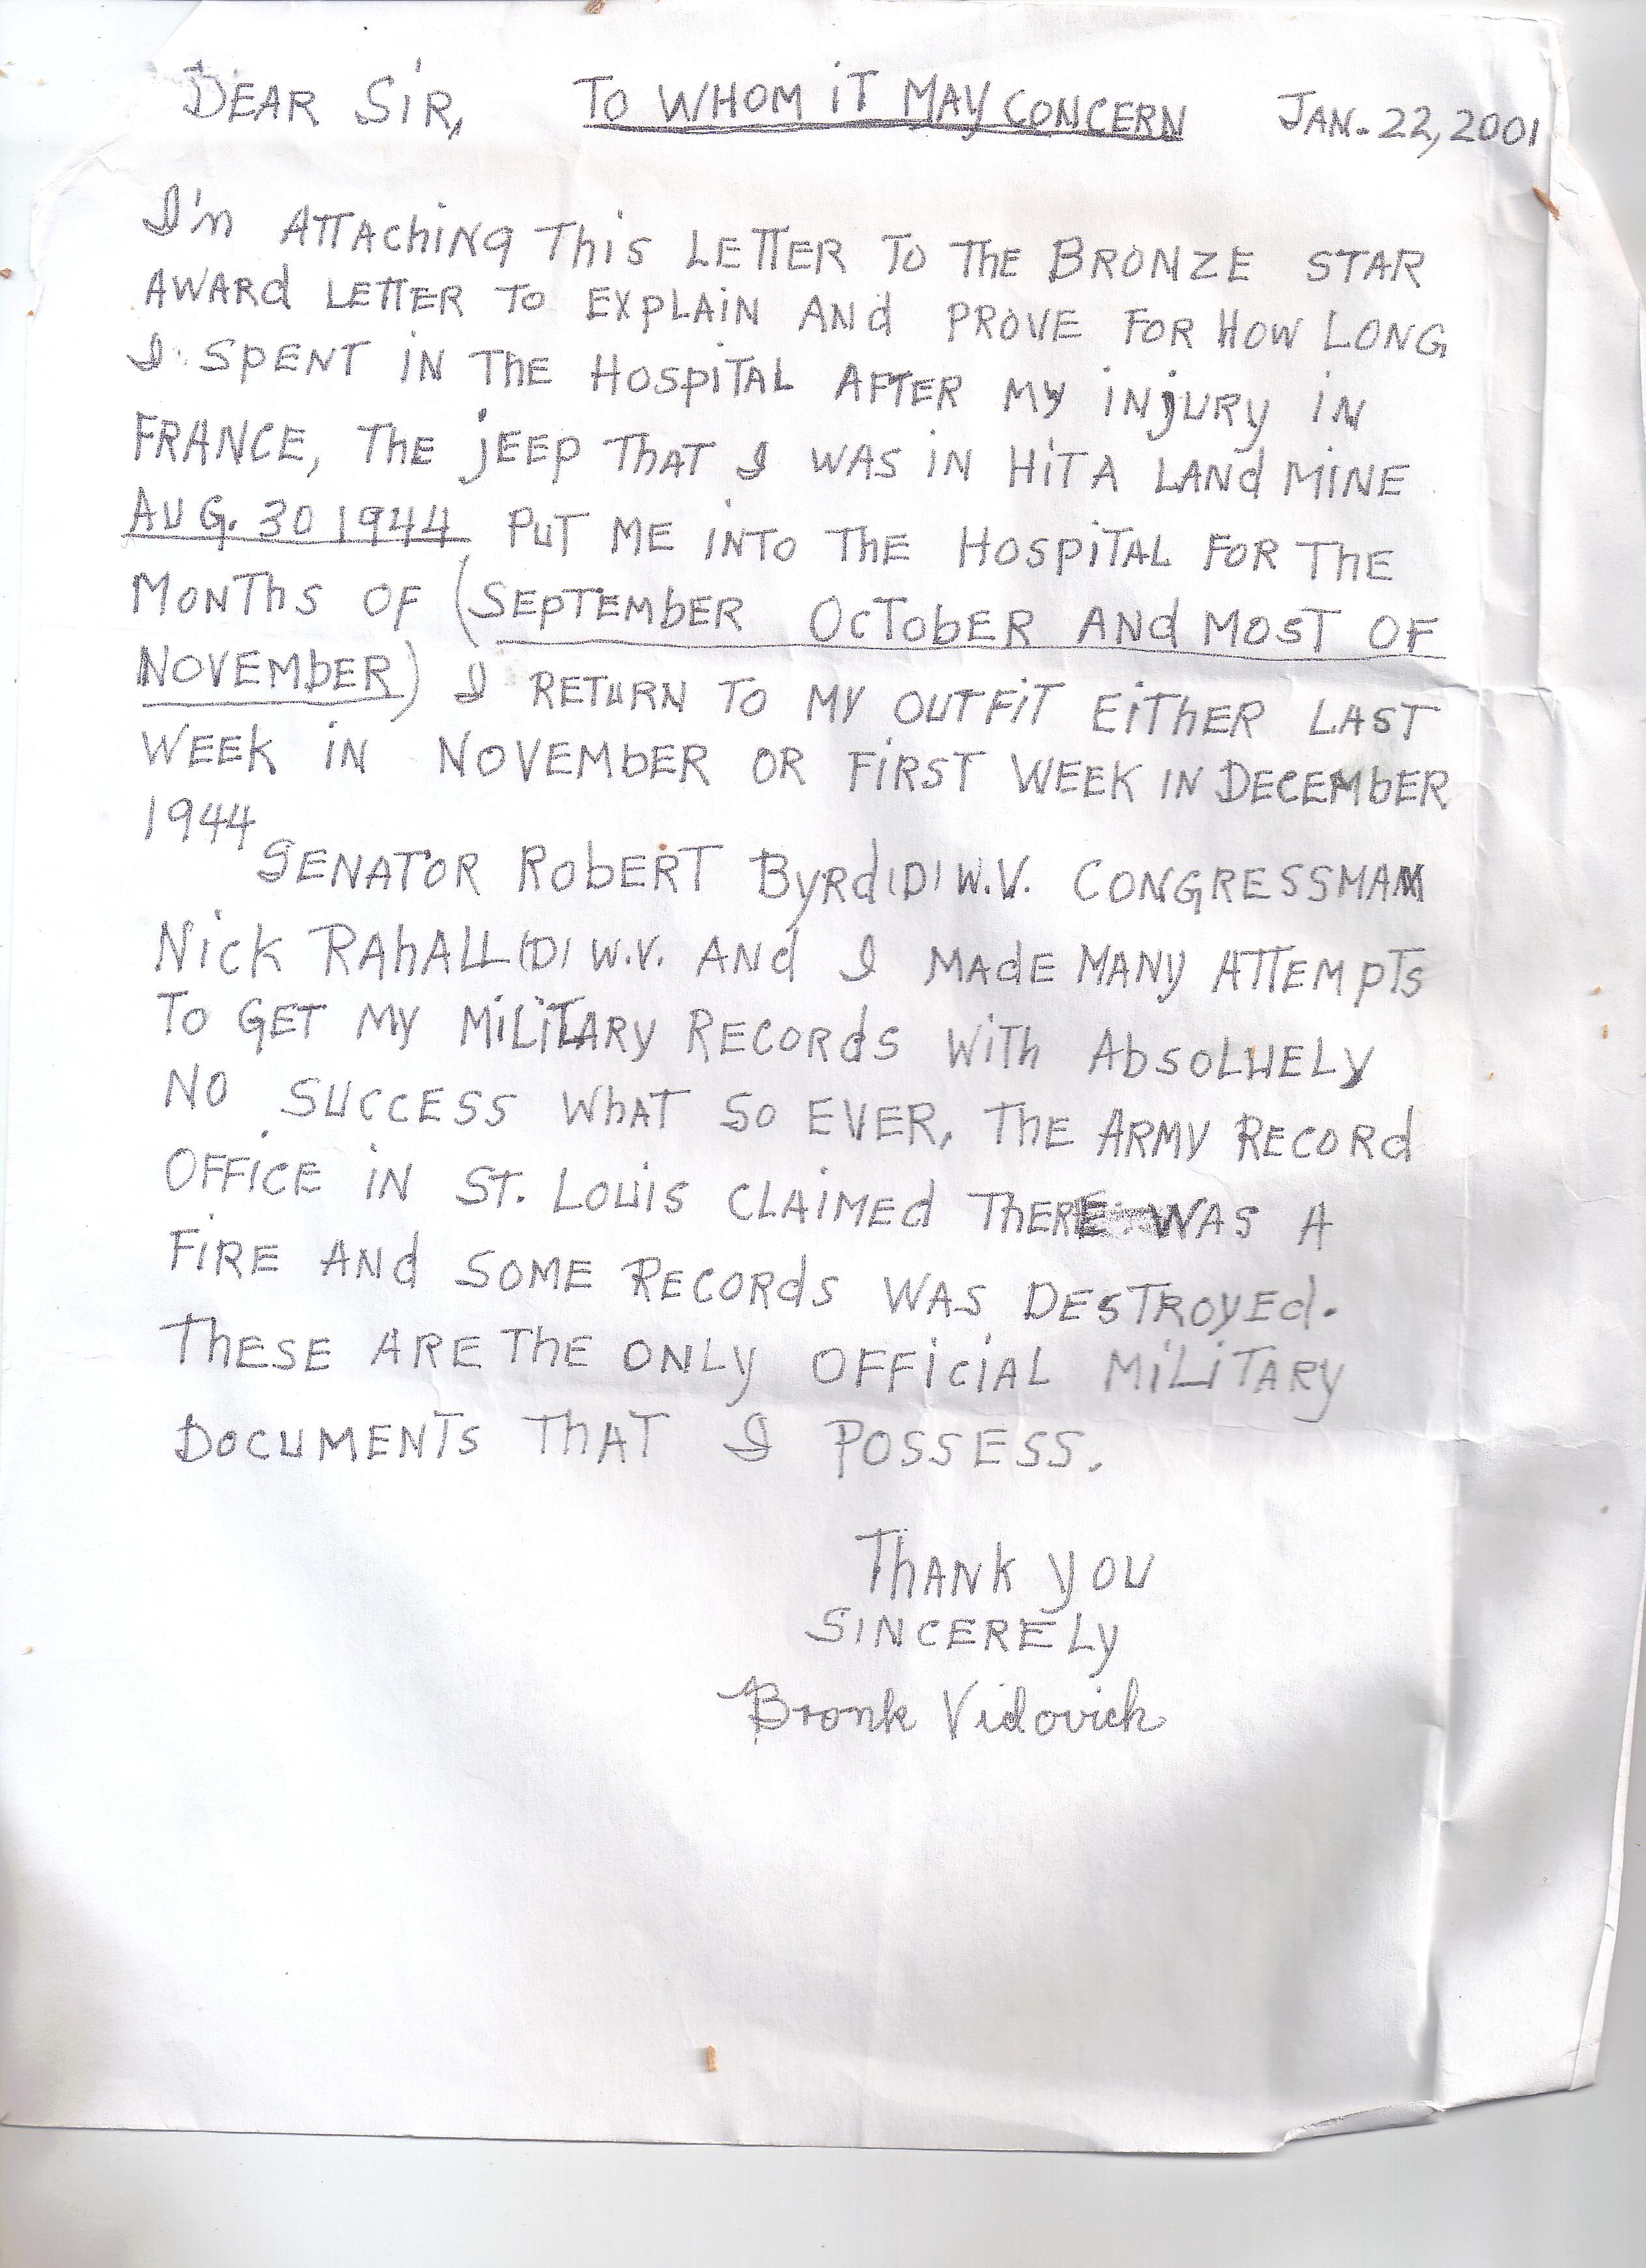 DEAR SIR, TO WHOM IT MAY CONCERN JAN. 22, 2001
I'n ATTAChiNG ThIS LETTER TO ThE BRONZE STAR
AWARd LETTER TO EXPLAIN ANd PROVE FOR HOW LONG
I SPENT IN ThE HOSPITAL AFTER MY INJURY IN
FRANCE, ThE JEEP ThAT I WAS IN HIT A LANd MINE
AUG. 30 1944 PUT ME INTO ThE HOSPITAL FOR ThE
MONThS OF (SEPTEMbER OCTObER ANd MOST OF
NOVEMbER) I RETURN TO MY OUTFIT EIThER LAST
WEEK IN NOVEMbER OR FIRST WEEK IN DECEMbER
1944
SENATOR RObERT BYRd (D) W.V. CONGRESSMAN
NICK RAhALL (D) W.V. ANd I MAdE MANY ATTEMPTS
TO GET MY MILITARY RECORdS WITh AbSOLUELY
NO SUCCESS WhAT SO EVER, ThE ARMY RECORd
OFFICE IN ST. LOUIS CLAIMEd ThERE WAS A
FIRE ANd SOME RECORdS WAS DESTROYEd.
ThESE ARE ThE ONLY OFFICIAL MILITARY
DOCUMENTS ThAT I POSSESS.
ThANK YOU
SINCERELY
Bronk Vidovich